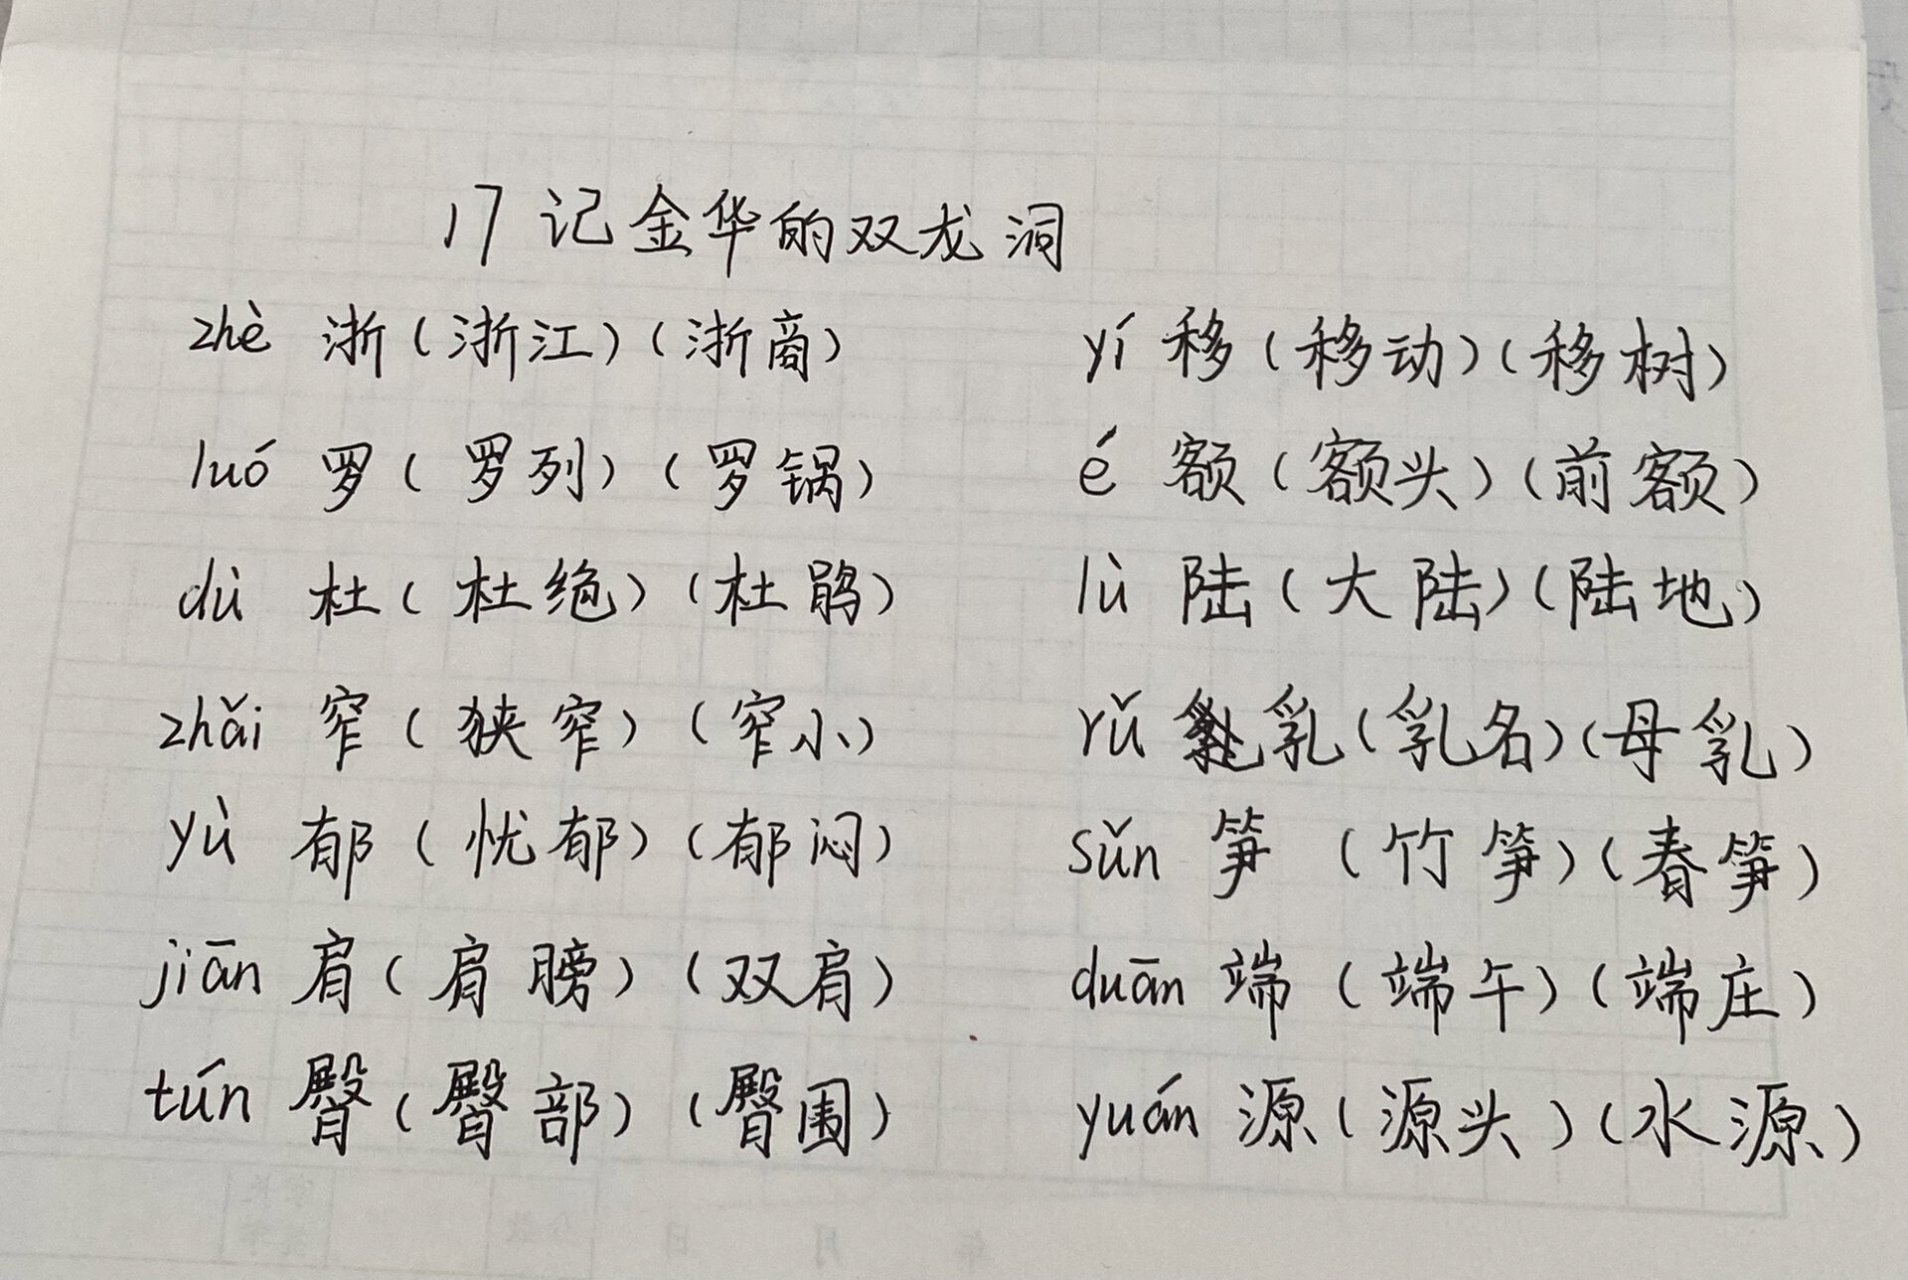 17 记金华的双龙洞
zhè 浙（浙江）（浙商） yí 移（移动）（移树）
luó 罗（罗列）（罗锅） é 额（额头）（前额）
dù 杜（杜绝）（杜鹃） lù 陆（大陆）（陆地）
zhǎi 窄（狭窄）（窄小） rǔ 乳（乳名）（母乳）
yù 郁（忧郁）（郁闷） sǔn 笋（竹笋）（春笋）
jiān 肩（肩膀）（双肩） duān 端（端午）（端庄）
tún 臀（臀部）（臀围） yuán 源（源头）（水源）